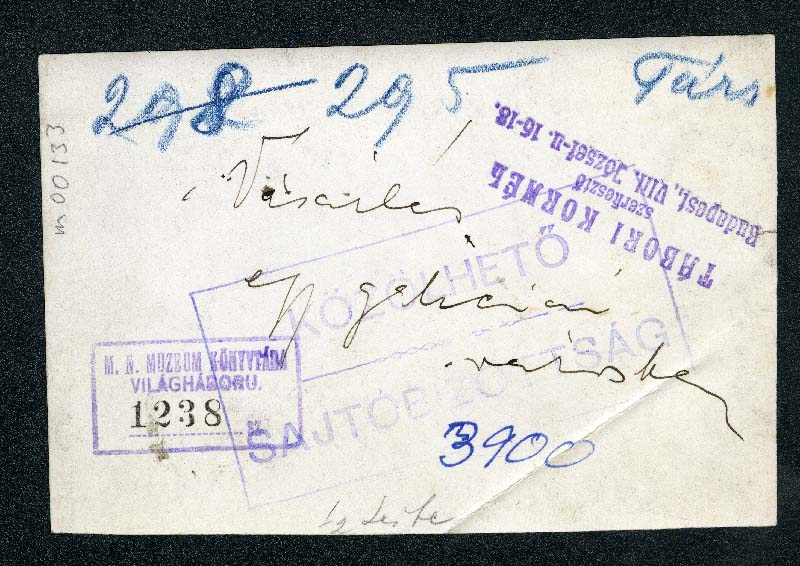 298 295
m 00133
TÁBORI KORNÉL
szerkesztő
Budapest, VIII. József-u. 16-18.
Vásárlás
egy galiciai
városban
KÖZÖLHETŐ
SAJTÓBIZOTTSÁG
M. N. MUZEUM KÖNYVTÁRA
VILÁGHÁBORU.
1238
3900